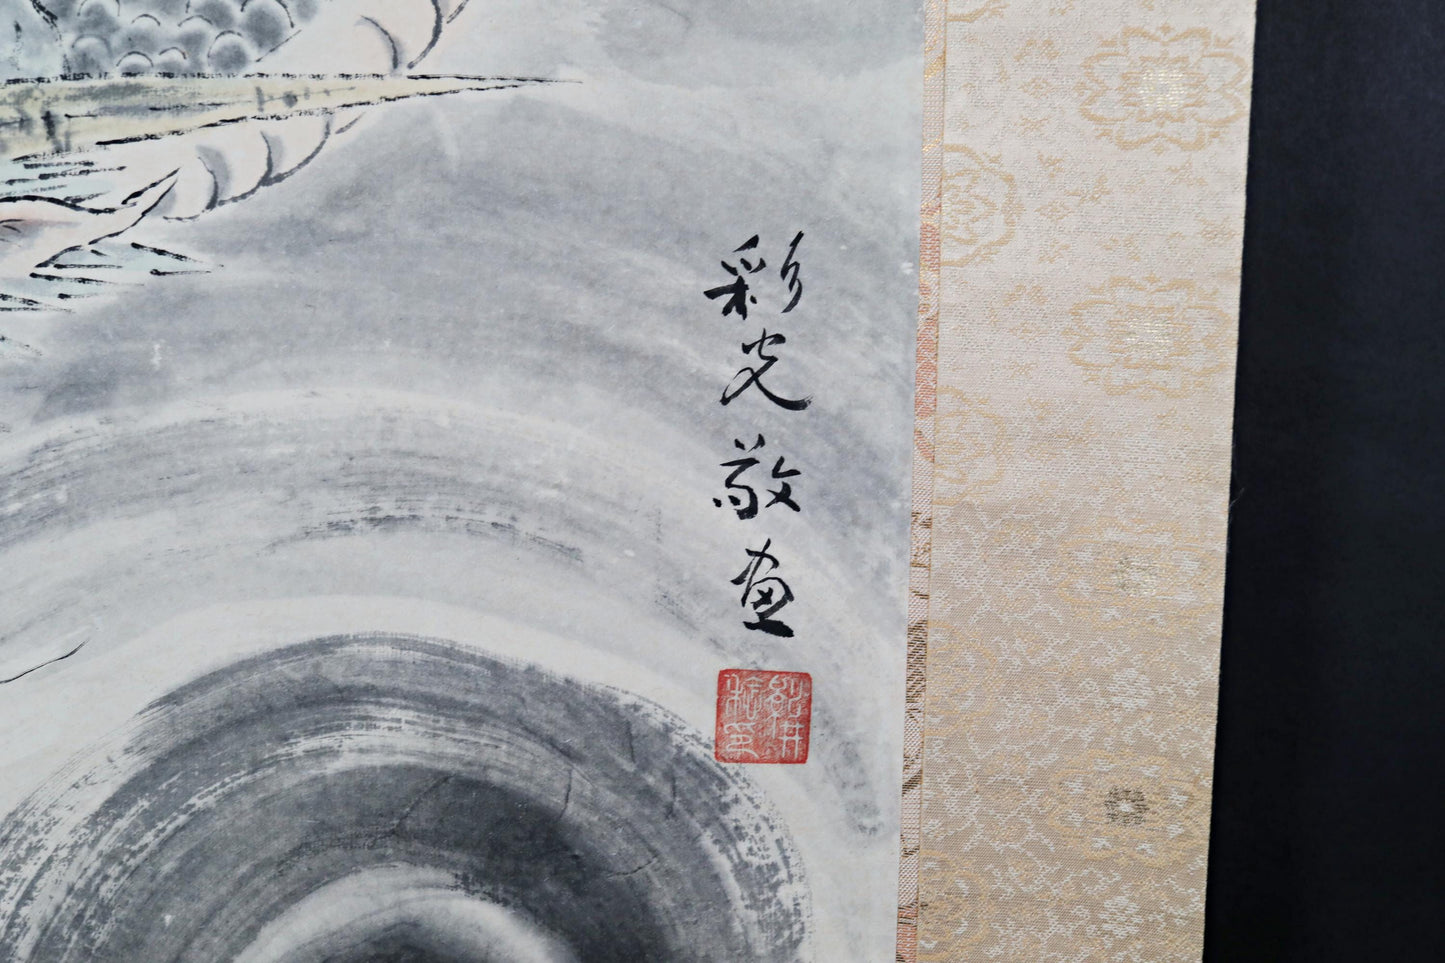 彩光敬画